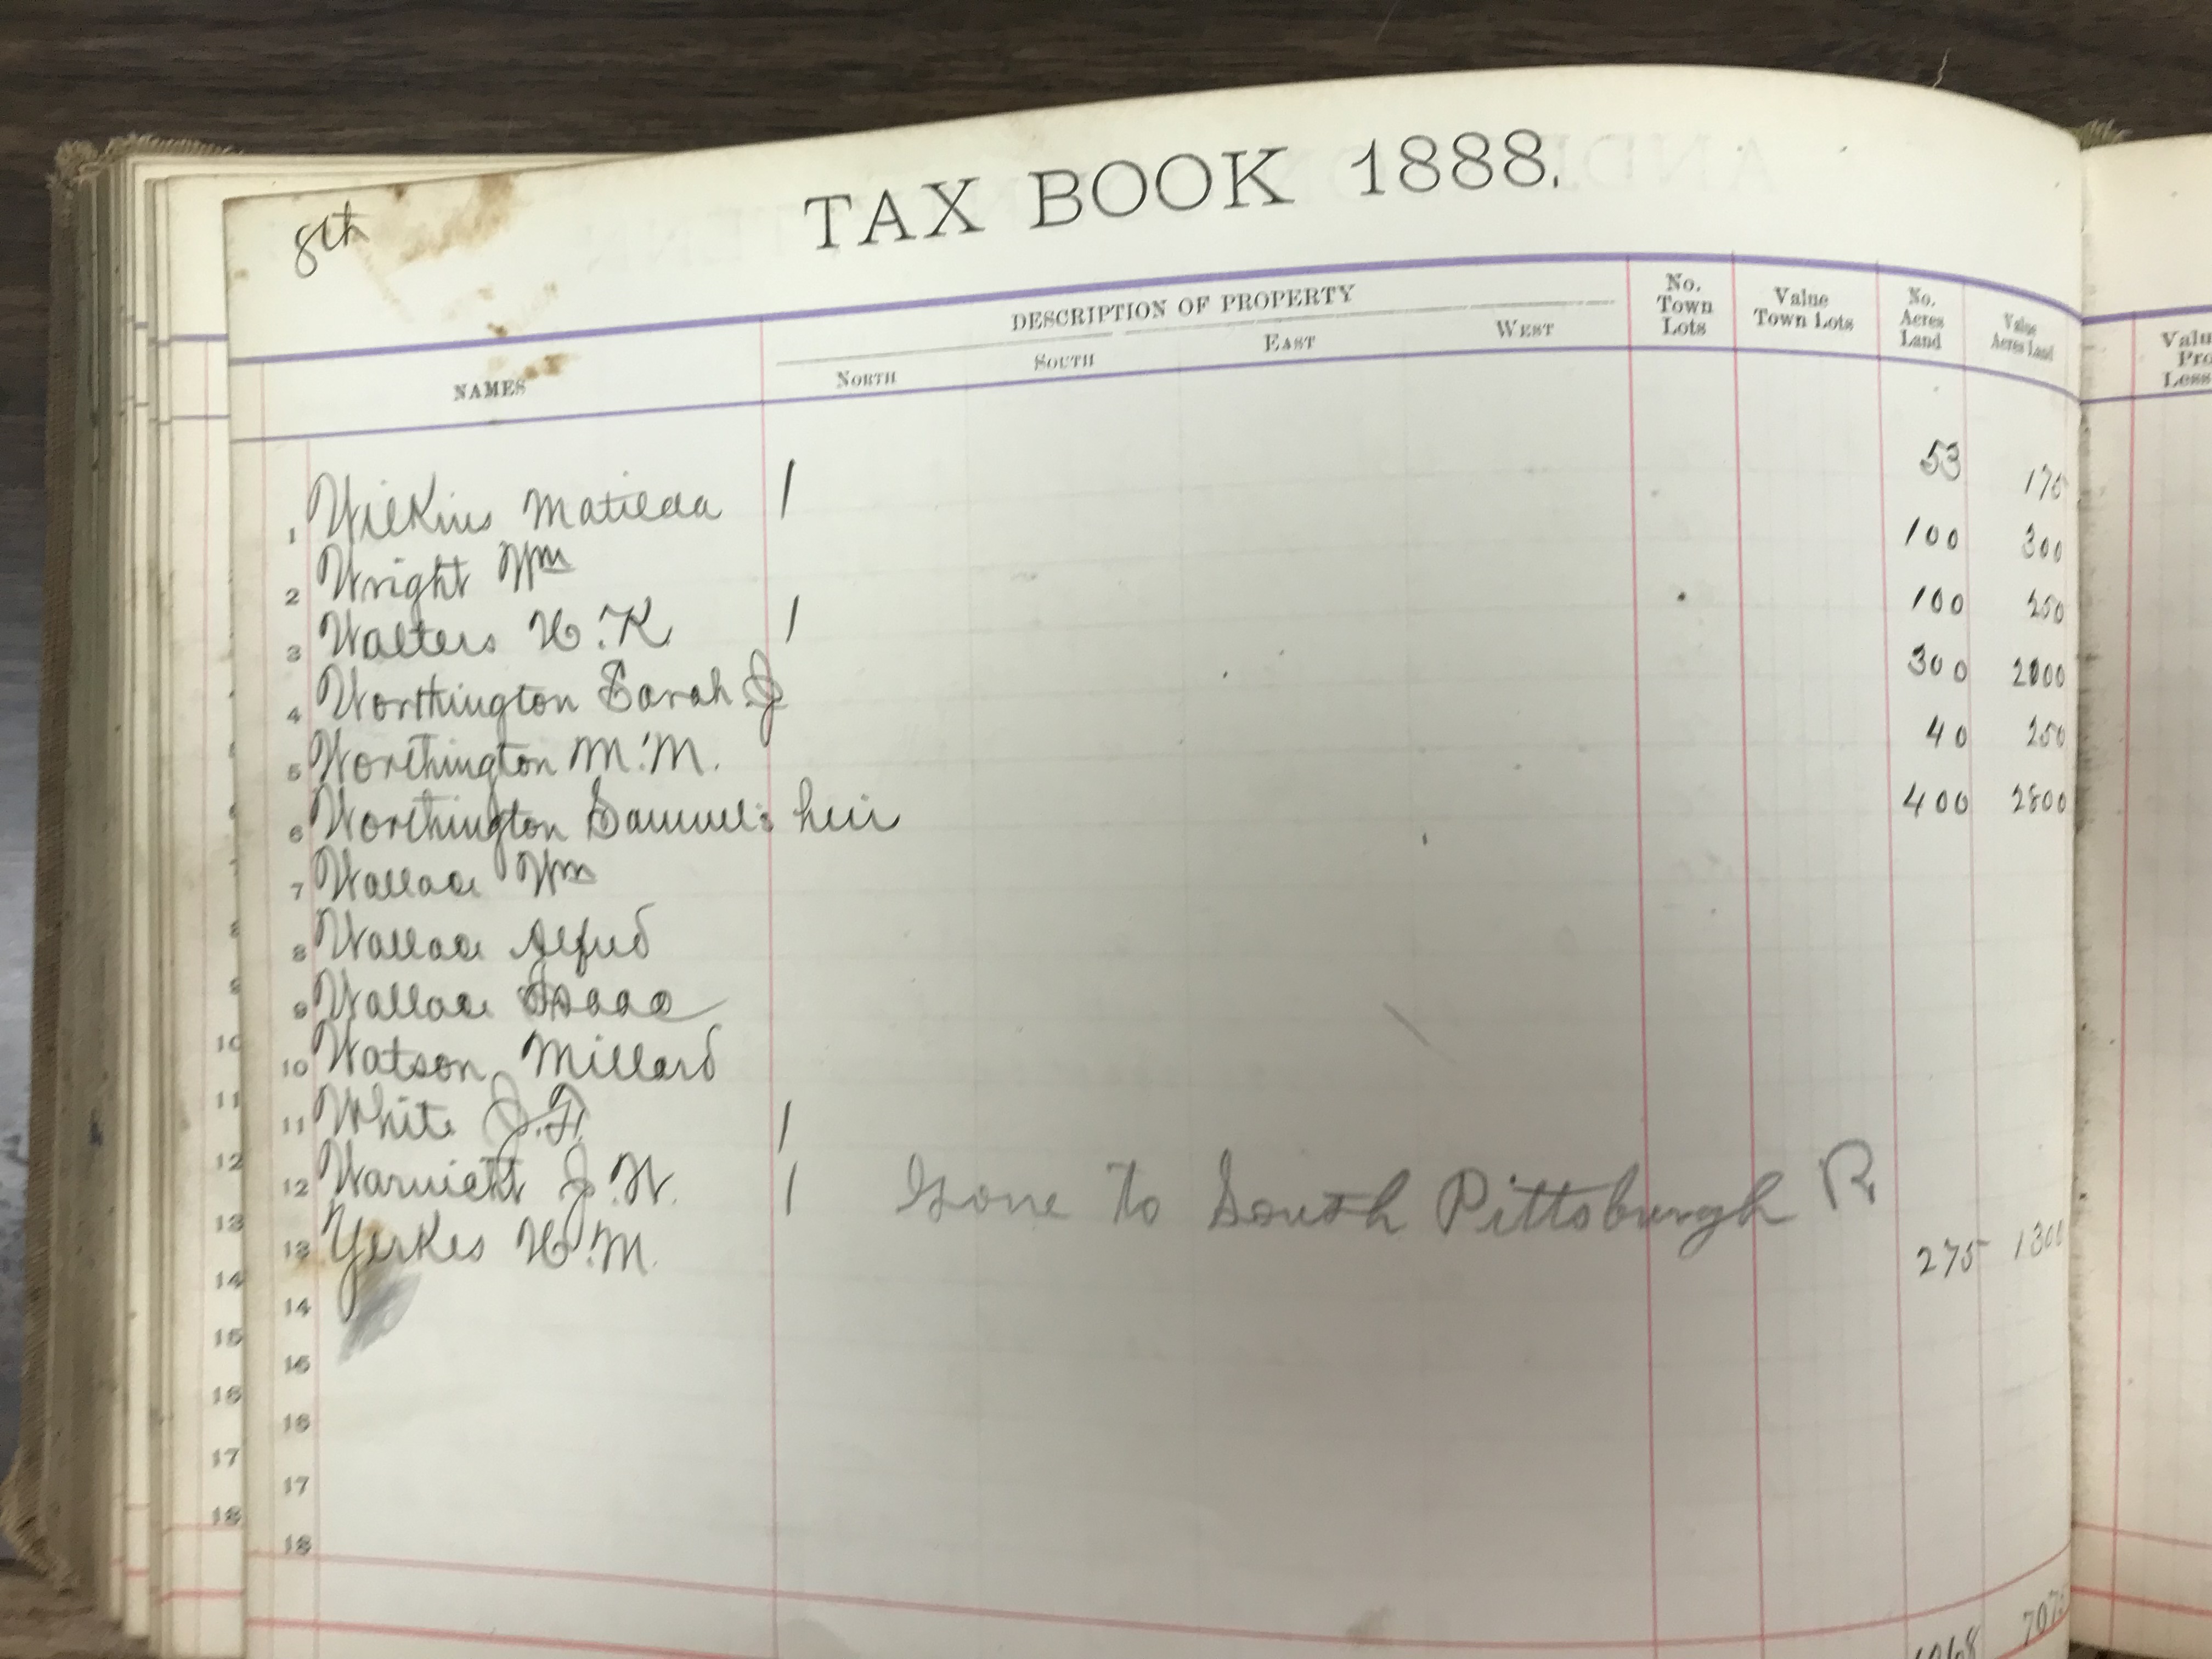 8th
TAX BOOK 1888.
NAMES
DESCRIPTION OF PROPERTY
NORTH SOUTH EAST WEST
No. Town Lots
Value Town Lots
No. Acres Land
Value Acres Land
1 Wilkins Matilda 1 53 175
2 Wright Wm 100 300
3 Walters H. K 1 100 250
4 Worthington Sarah J 300 2000
5 Worthington M. M. 40 250
6 Worthington Samuel: heir 400 2800
7 Wallace Wm
8 Wallace Alfred
9 Wallace Isaac
10 Watson Millard
11 White J. F. 1
12 J. W. 1 Gone to South Pittsburgh R
13 Yerkes H. M. 275 1300
14
15
16
17
18
1268 707
Valu
Pro
Less
10
11
12
13
14
15
16
17
18